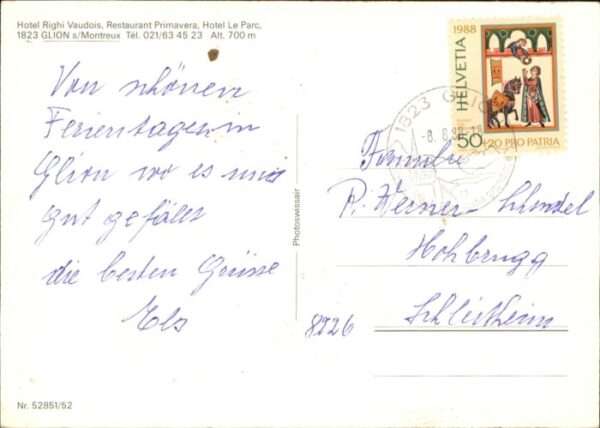 Hotel Righi Vaudois, Restaurant Primavera, Hotel Le Parc,
1823 GLION s/Montreux Tél. 021/63 45 23 Alt. 700 m
Von schönen
Ferientagen in
Glion wo es uns
gut gefällt
die besten Grüsse
Els
Photoswissair
1988
HELVETIA
50+20 PRO PATRIA
1823 GLION
-8. 8.
Familie
P. Werner-
Hohbrugg
8226
Schleitheim
Nr. 52851/52